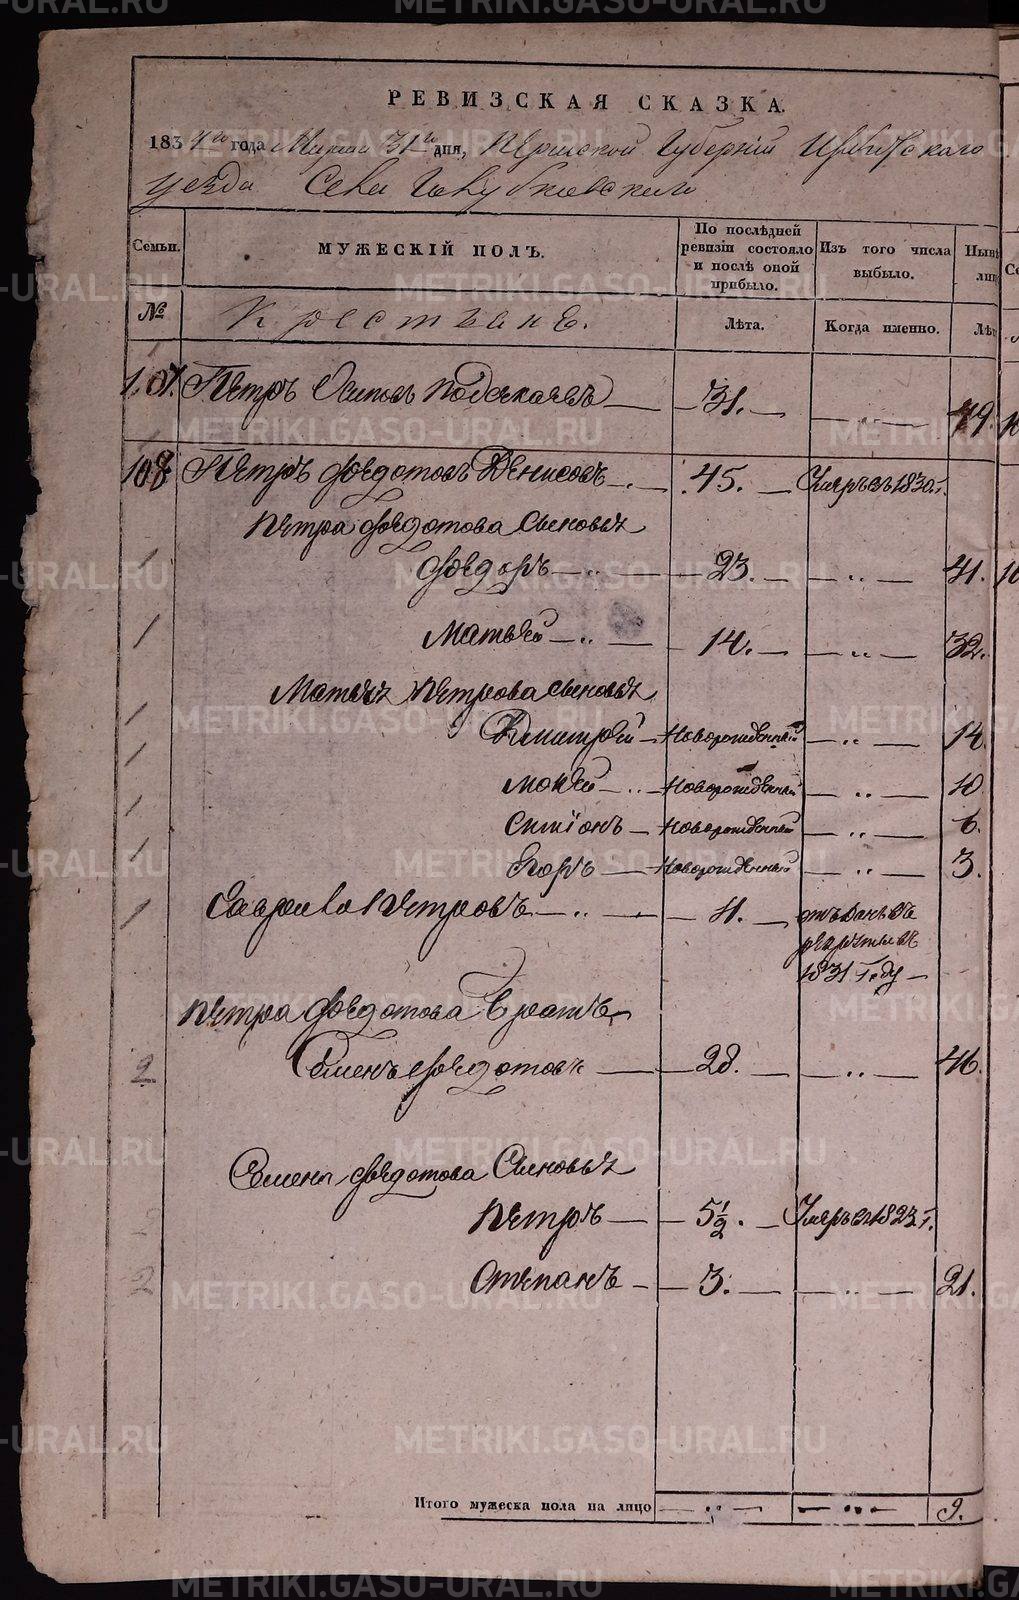 РЕВИЗСКАЯ СКАЗКА.
1834го года Марта 31го дня, Пермской Губернїи Ирбитскаго
уезда Села
Семьи. МУЖЕСКІЙ ПОЛЪ. По послѣдней ревизіи состояло и послѣ оной прибыло. Изъ того числа выбыло. Нынѣ
№ Крестьяне. Лѣта. Когда именно. Лѣт
107. Петръ Осиповъ — 31. — — 49.
108 Петръ Федотовъ Денисовъ — 45. — Умеръ въ 1830 г.
Петра Федотова Сыновья
1 Федоръ — 23. — — 41.
1 Матвей — 14. — — 32.
Матвея Петрова сыновья
1 Дмитрей — Новорожденный — 14.
1 Мокей — Новорожденный — 10
1 Симїонъ — Новорожденный — 6.
1 Егоръ — Новорожденный — 3.
1 Гаврила Петровъ — 11. — отъданъ въ
рекруты въ
1831 Году —
Петра Федотова Братъ
2 Семенъ Федотовъ — 28. — — 46.
Семена Федотова Сыновья
2 Петръ — 5½. — Умеръ въ 1823 г.
2 Степанъ — 3. — — 21.
Итого мужеска пола на лицо — — 9.
METRIKI.GASO-URAL.RU